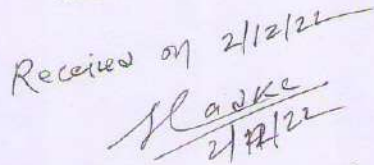 Received on 2/12/22
2/12/22